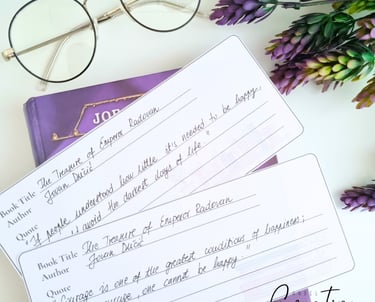 Book Title The Treasure of Emperor Radovan
Author Jovan Dučić
Quote
"If people understood how little it's needed to be happy,
avoid the darkest days of life."
Book Title The Treasure of Emperor Radovan
Author Jovan Dučić
Quote
Courage is one of the greatest conditions of happiness;
courage, one cannot be happy."